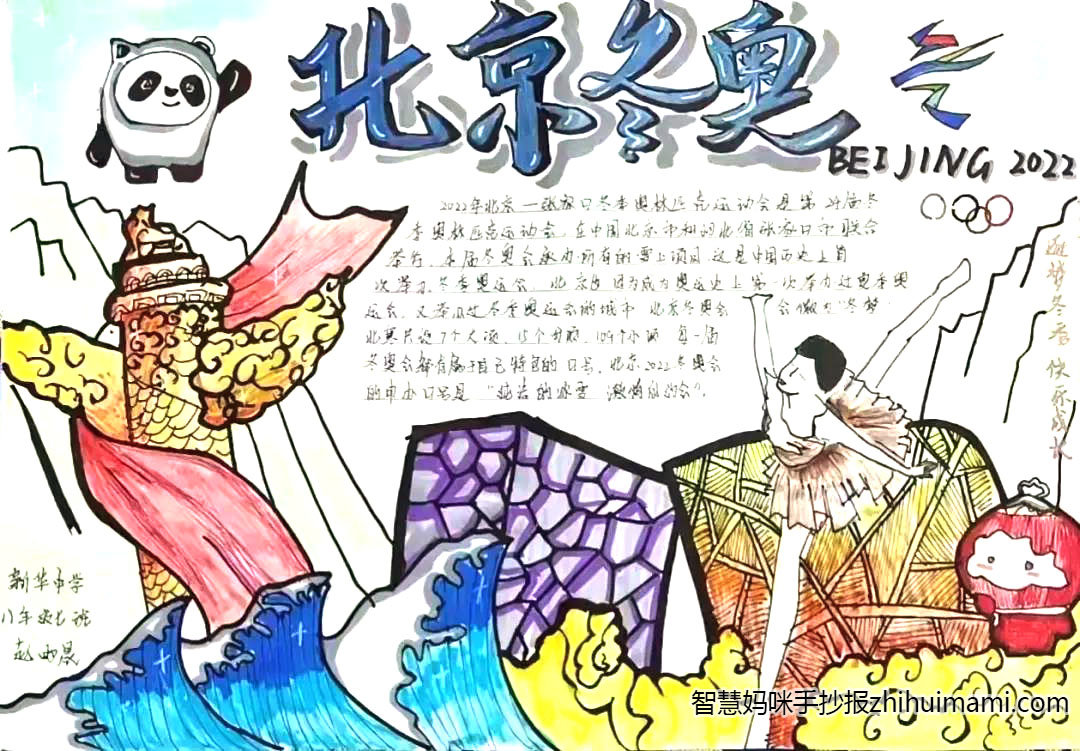 北京冬奥
BEIJING 2022
2022年北京—张家口冬季奥林匹克运动会是第24届冬
季奥林匹克运动会，在中国北京市和河北省张家口市联合
举行，本届冬奥会承办所有的雪上项目，这是中国历史上首
次举办冬季奥运会，北京也因为成为奥运史上第一次举办过夏季奥
运会，又举办过冬季奥运会的城市，北京冬奥会
北京共设7个大项，15个分项，109个小项，每一届
冬奥会都有属于自己特色的口号，北京2022冬奥会
的申办口号是“纯洁的冰雪 激情的约会”。
冬奥 快乐成长
新华中学
八年级七班
智慧妈咪手抄报zhihuimami.com